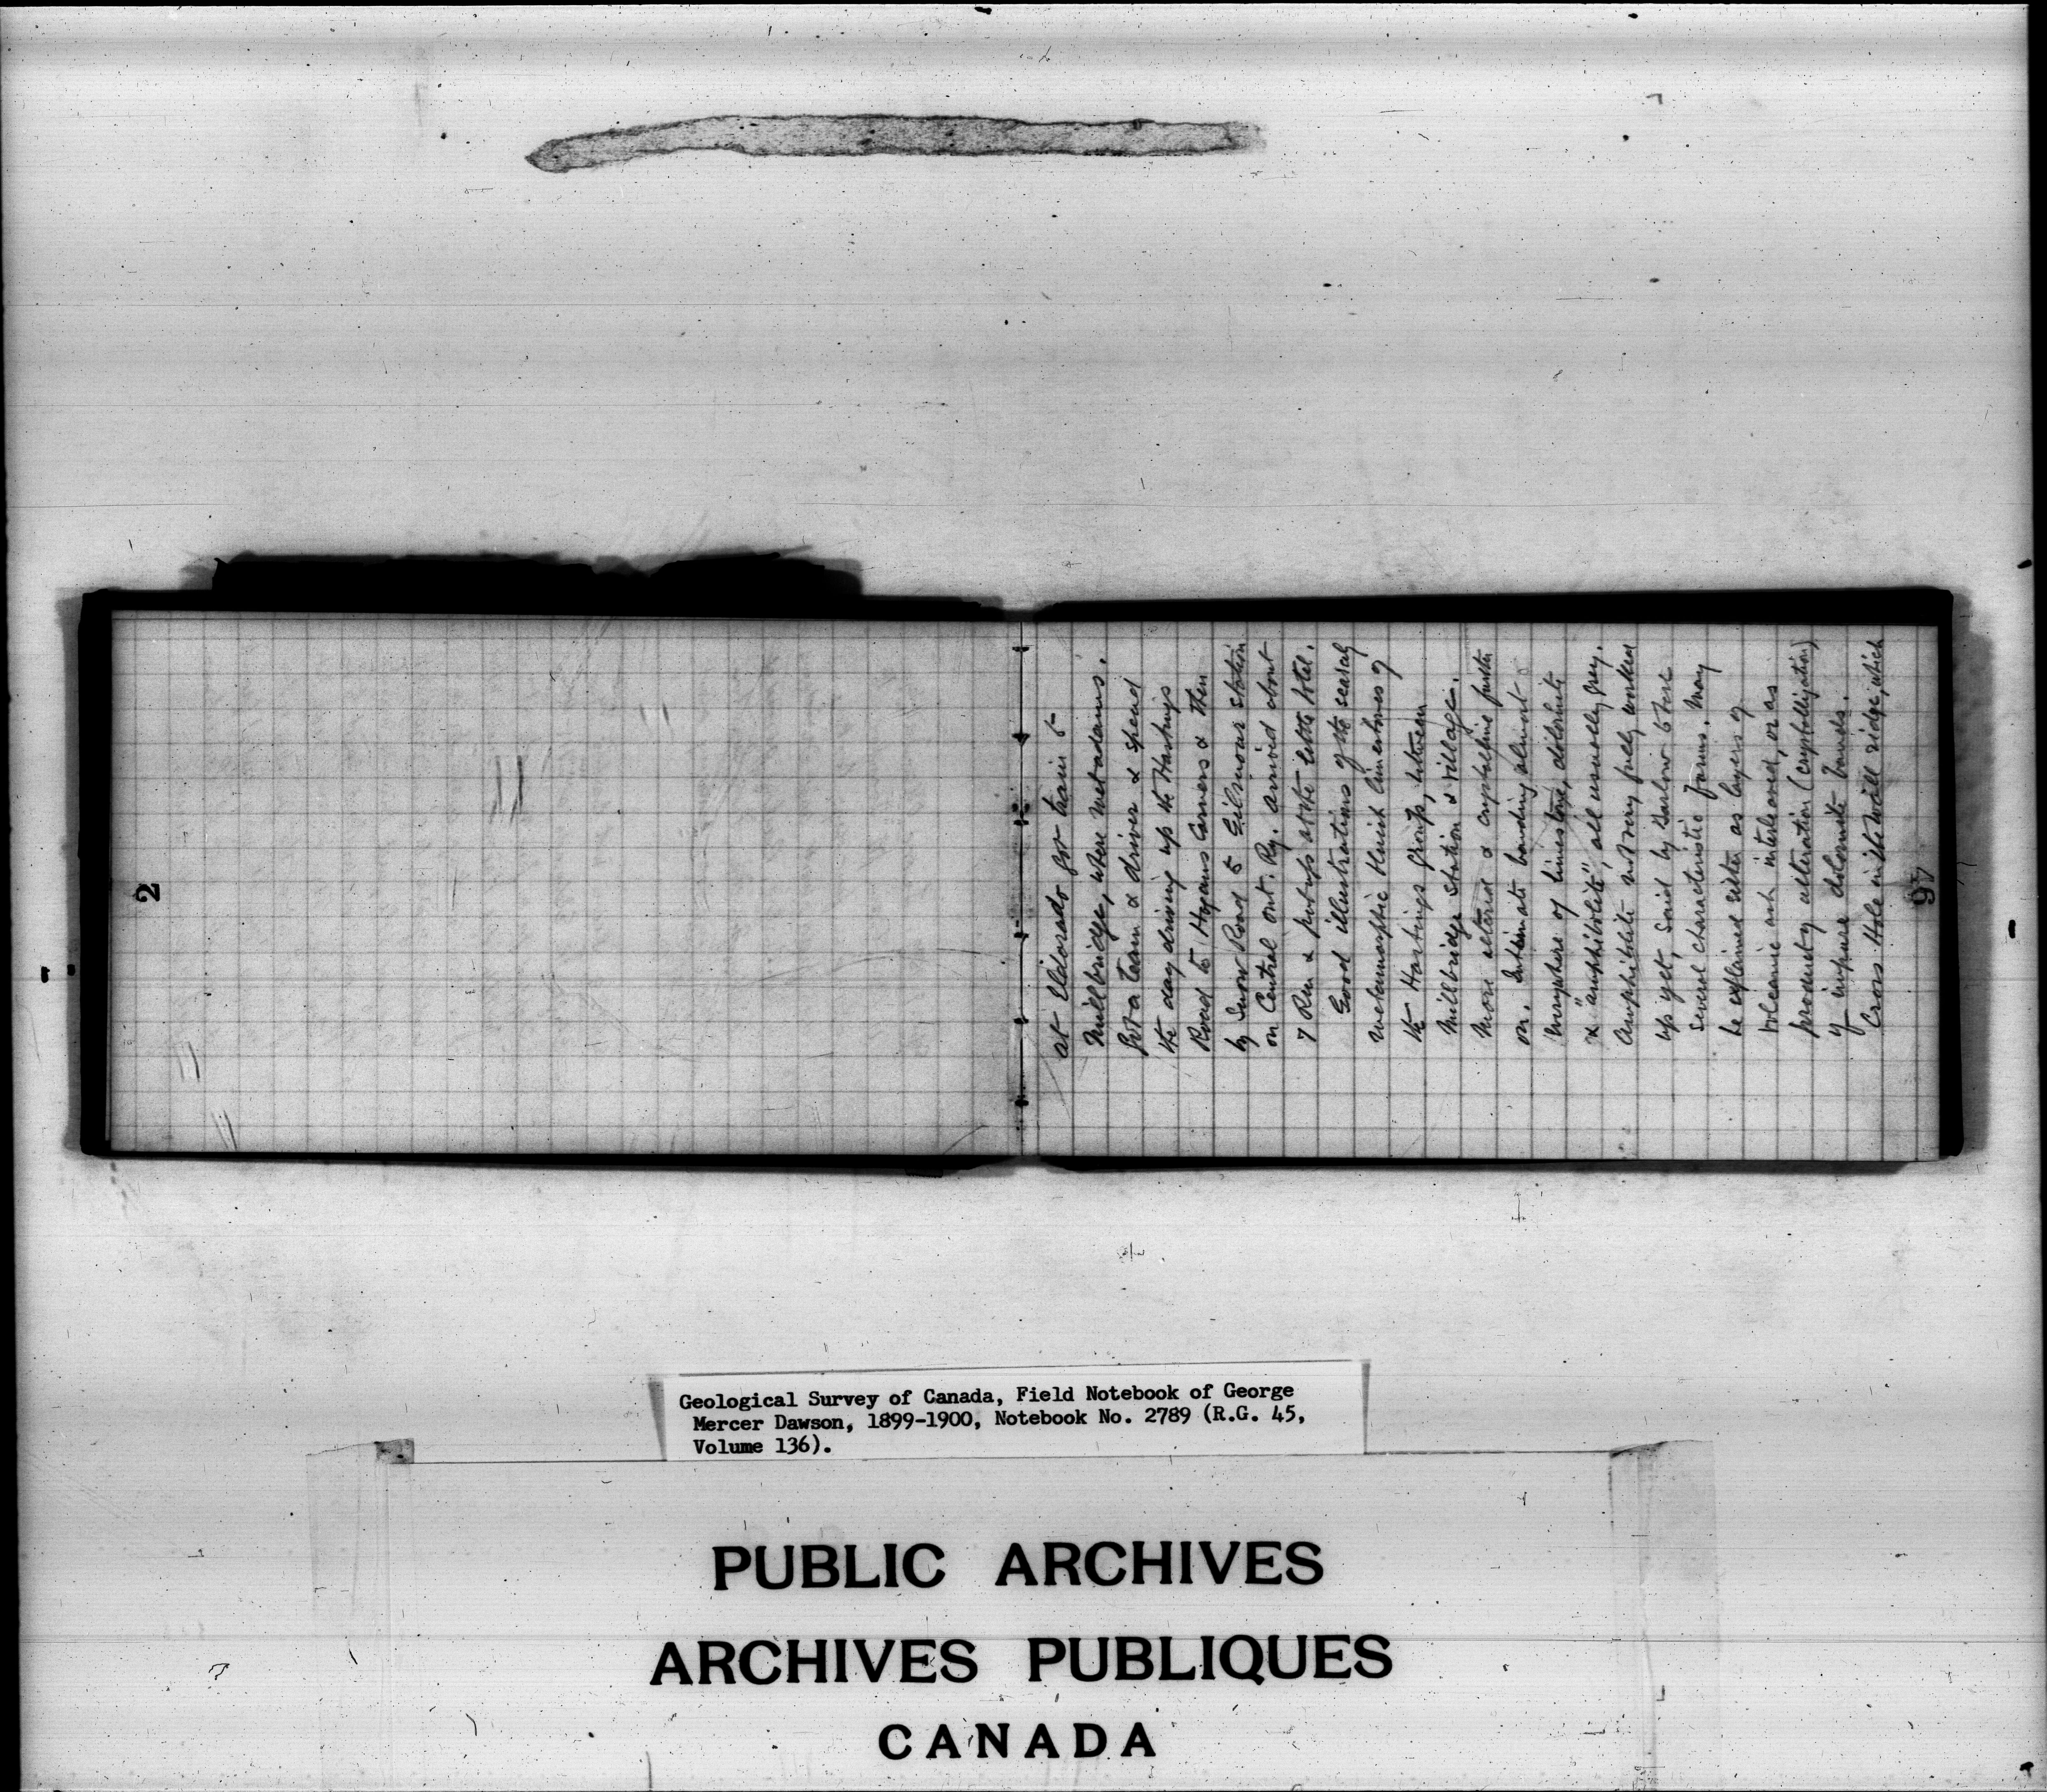 2
at Eldorado got train to
Millbridge, where met Adams.
Got a team & driver & spend
the day driving up the Hastings
Road to Hogans Corners & then
by Snow Road to Gilmour station
on Central Ont. Ry. arrived about
7 P.m & put up at the little hotel.
Good illustrations of the scarcely
metamorphic bluish limestones of
the Hastings group, between
Millbridge Station & village.
More altered & crystalline further
on. Intimate banding almost
everywhere of limestone, dolomite
& "amphibolite", all usually grey.
Amphibolite not very fully worked
up yet, said by Barlow to have
several characteristic forms. May
be explained either as layers of
volcanic ash interleaved, or as
product of alteration (crystallization)
of impure dolomite bands.
Cross Hole in the wall ridge, which
46
Geological Survey of Canada, Field Notebook of George
Mercer Dawson, 1899-1900, Notebook No. 2789 (R.G. 45,
Volume 136).
PUBLIC ARCHIVES
ARCHIVES PUBLIQUES
CANADA